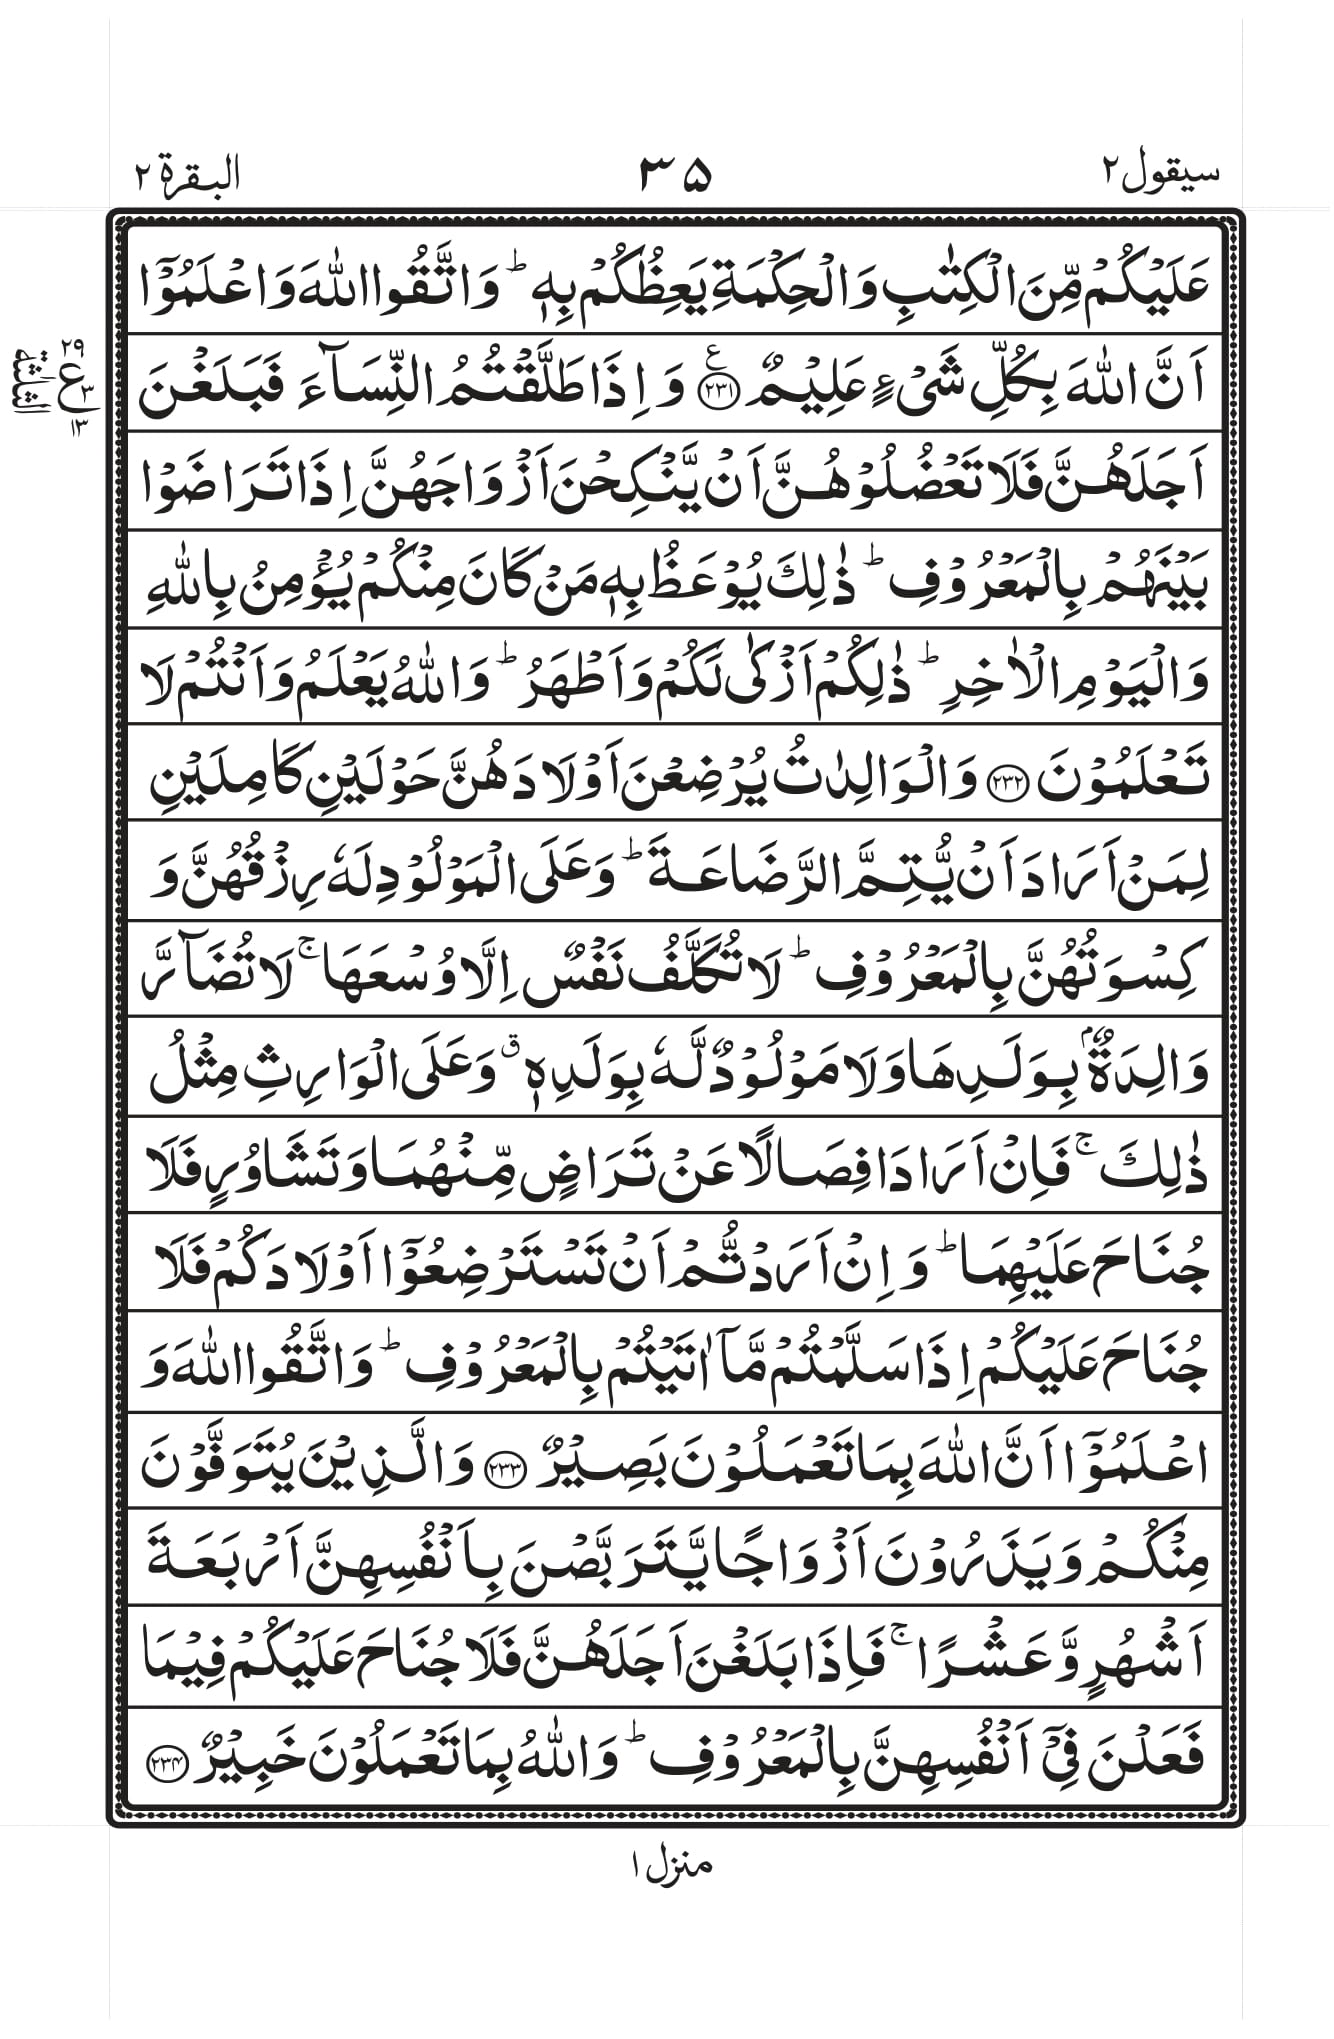 سيقول ٢
٣٥
البقرة ٢
عَلَيۡكُمۡ مِّنَ الۡكِتٰبِ وَالۡحِكۡمَةِ يَعِظُكُمۡ بِهٖ ؕ وَاتَّقُوا اللّٰهَ وَاعۡلَمُوۡٓا
اَنَّ اللّٰهَ بِكُلِّ شَىۡءٍ عَلِيۡمٌ ﴿۲۳۱﴾ ع وَاِذَا طَلَّقۡتُمُ النِّسَآءَ فَبَلَغۡنَ
٢٩
ع ٣
١٣
الثلثة
اَجَلَهُنَّ فَلَا تَعۡضُلُوۡهُنَّ اَنۡ يَّنۡكِحۡنَ اَزۡوَاجَهُنَّ اِذَا تَرَاضَوۡا
بَيۡنَهُمۡ بِالۡمَعۡرُوۡفِ ؕ ذٰلِكَ يُوۡعَظُ بِهٖ مَنۡ كَانَ مِنۡكُمۡ يُؤۡمِنُ بِاللّٰهِ
وَالۡيَوۡمِ الۡاٰخِرِ ؕ ذٰلِكُمۡ اَزۡكٰى لَكُمۡ وَاَطۡهَرُ ؕ وَاللّٰهُ يَعۡلَمُ وَاَنۡتُمۡ لَا
تَعۡلَمُوۡنَ ﴿۲۳۲﴾ وَالۡوَالِدٰتُ يُرۡضِعۡنَ اَوۡلَادَهُنَّ حَوۡلَيۡنِ كَامِلَيۡنِ
لِمَنۡ اَرَادَ اَنۡ يُّتِمَّ الرَّضَاعَةَ ؕ وَعَلَى الۡمَوۡلُوۡدِ لَهٗ رِزۡقُهُنَّ وَ
كِسۡوَتُهُنَّ بِالۡمَعۡرُوۡفِ ؕ لَا تُكَلَّفُ نَفۡسٌ اِلَّا وُسۡعَهَا ۚ لَا تُضَآرَّ
وَالِدَةٌۢ بِوَلَدِهَا وَلَا مَوۡلُوۡدٌ لَّهٗ بِوَلَدِهٖ ق وَعَلَى الۡوَارِثِ مِثۡلُ
ذٰلِكَ ۚ فَاِنۡ اَرَادَا فِصَالًا عَنۡ تَرَاضٍ مِّنۡهُمَا وَتَشَاوُرٍ فَلَا
جُنَاحَ عَلَيۡهِمَا ؕ وَاِنۡ اَرَدۡتُّمۡ اَنۡ تَسۡتَرۡضِعُوۡٓا اَوۡلَادَكُمۡ فَلَا
جُنَاحَ عَلَيۡكُمۡ اِذَا سَلَّمۡتُمۡ مَّآ اٰتَيۡتُمۡ بِالۡمَعۡرُوۡفِ ؕ وَاتَّقُوا اللّٰهَ وَ
اعۡلَمُوۡٓا اَنَّ اللّٰهَ بِمَا تَعۡمَلُوۡنَ بَصِيۡرٌ ﴿۲۳۳﴾ وَالَّذِيۡنَ يُتَوَفَّوۡنَ
مِنۡكُمۡ وَيَذَرُوۡنَ اَزۡوَاجًا يَّتَرَبَّصۡنَ بِاَنۡفُسِهِنَّ اَرۡبَعَةَ
اَشۡهُرٍ وَّعَشۡرًا ۚ فَاِذَا بَلَغۡنَ اَجَلَهُنَّ فَلَا جُنَاحَ عَلَيۡكُمۡ فِيۡمَا
فَعَلۡنَ فِىۡٓ اَنۡفُسِهِنَّ بِالۡمَعۡرُوۡفِ ؕ وَاللّٰهُ بِمَا تَعۡمَلُوۡنَ خَبِيۡرٌ ﴿۲۳۴﴾
منزل ١